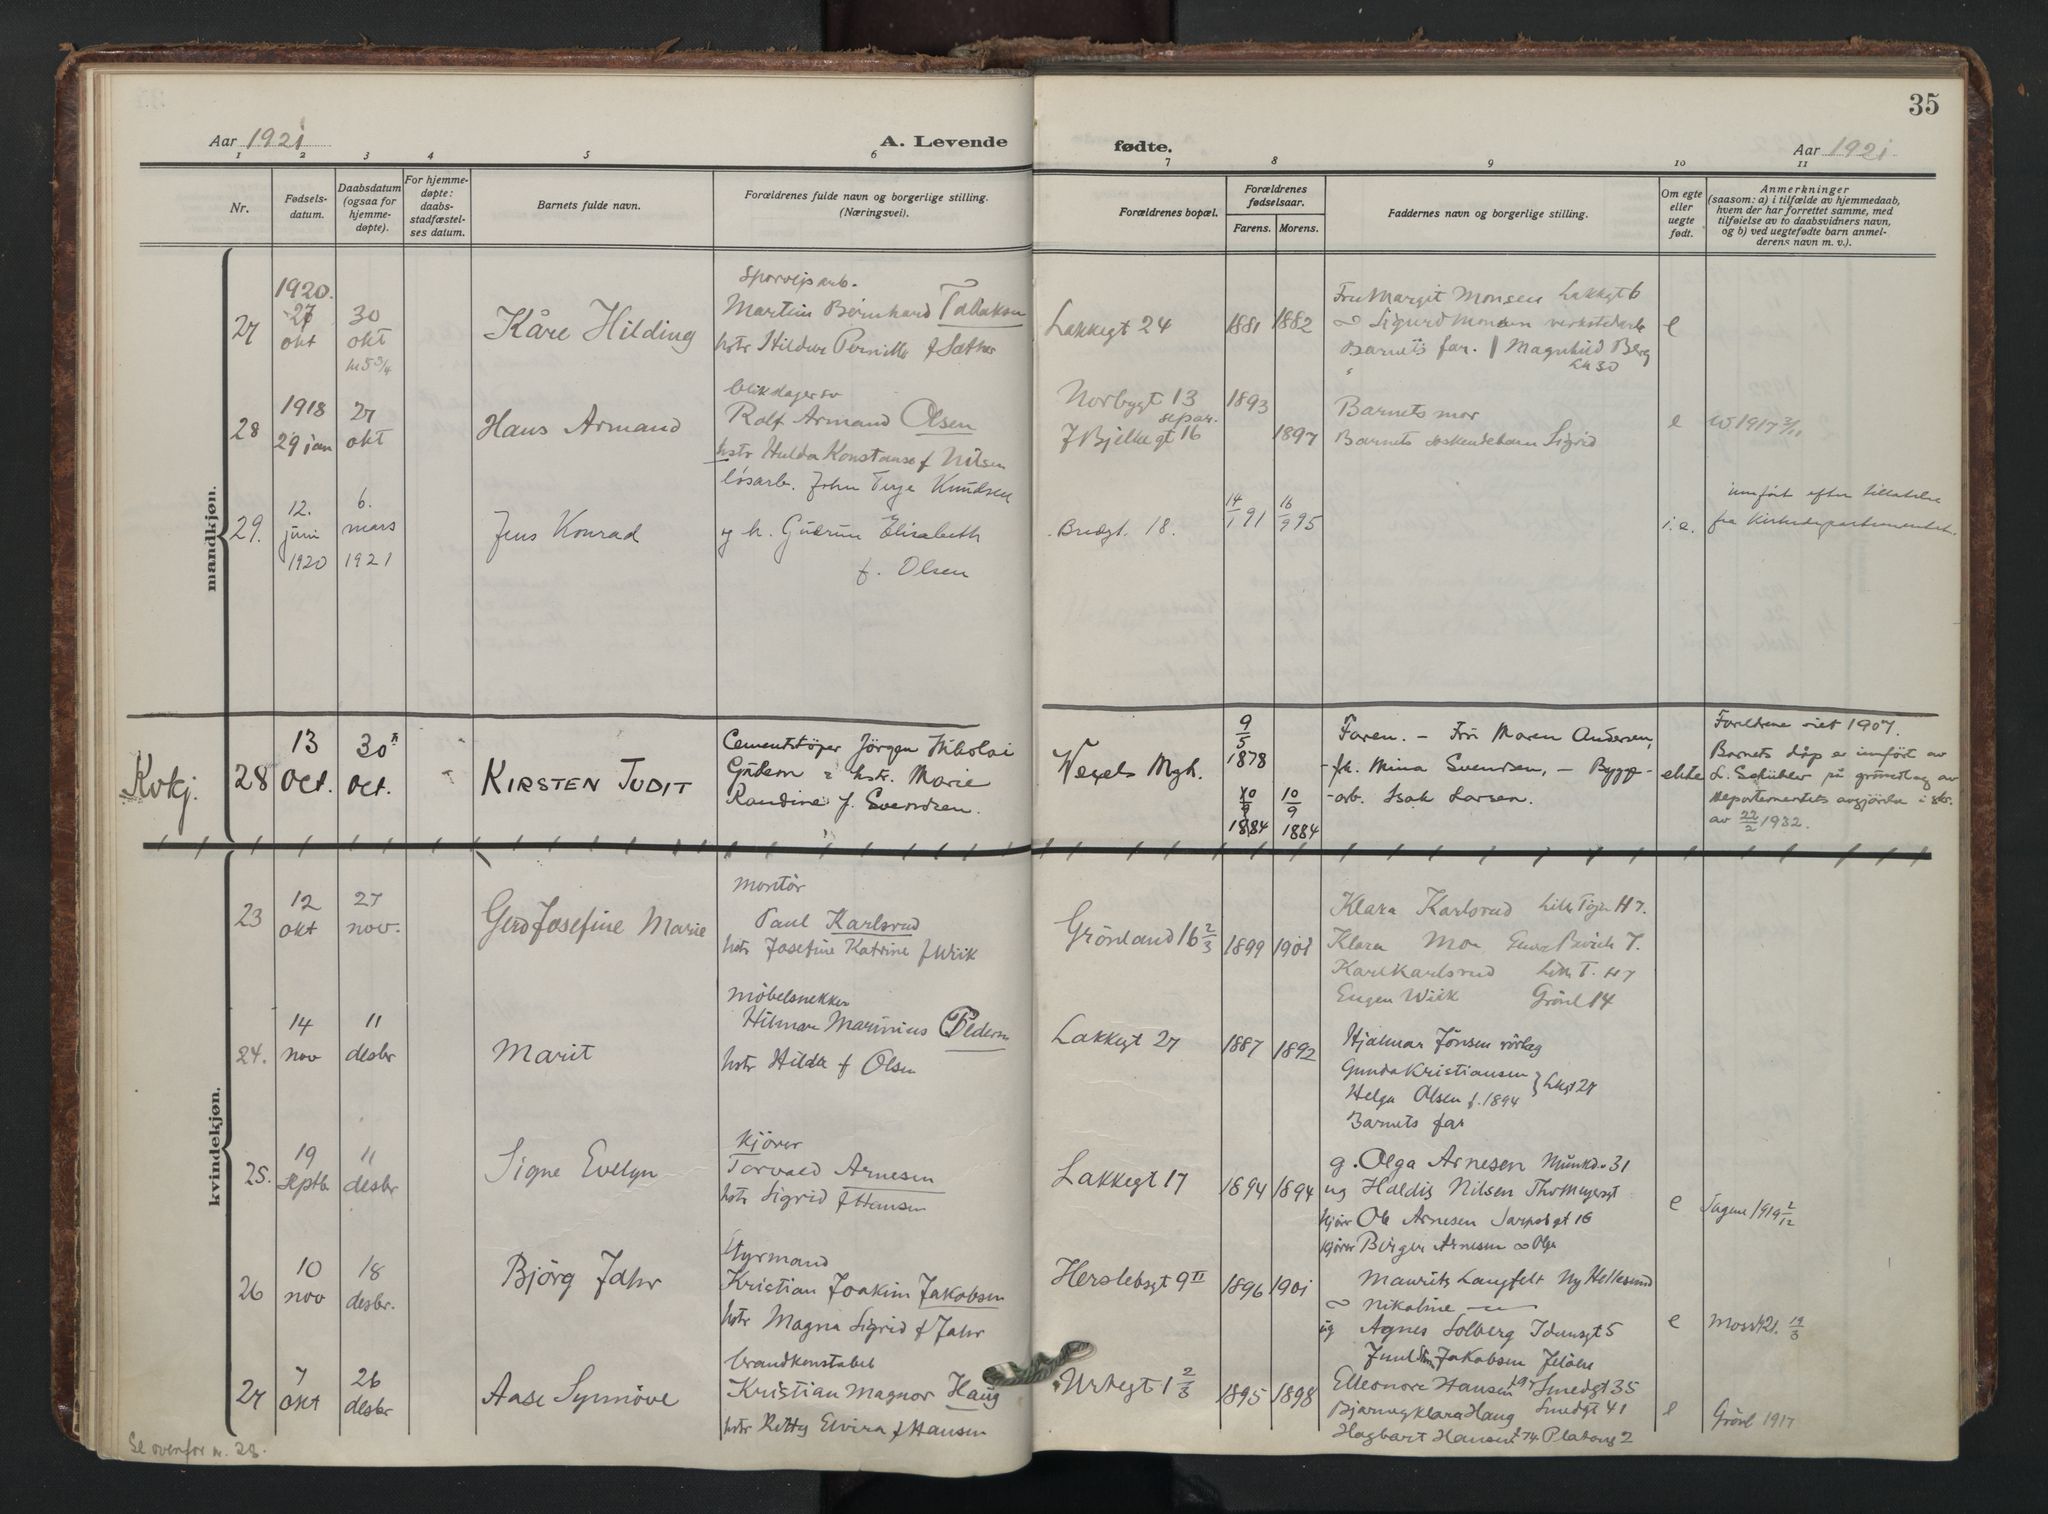 35
Aar 1921
A. Levende
fødte.
Aar 1921
1 2 3 4 5 6 7 8 9 10 11
Nr.
Fødsels-
datum.
Daabsdatum
(ogsaa for
hjemme-
døpte).
For hjemme-
døpte:
daabs-
stadfæstel-
ses datum.
Barnets fulde navn.
Forældrenes fulde navn og borgerlige stilling.
(Næringsvei).
Forældrenes bopæl.
Forældrenes
fødselsaar.
Farens. Morens.
Faddernes navn og borgerlige stilling.
Om egte
eller
uegte
født.
Anmerkninger
(saasom: a) i tilfælde av hjemmedaab,
hvem der har forrettet samme, med
tilføielse av to daabsvidners navn,
og b) ved uegtefødte barn anmel-
derens navn m. v.).
mandkjøn.
27
1920.
27
okt
30
okt
kl 5 3/4
Kåre Hilding
Sporveisarb.
Martin Bernhard Tollaksen
hstr Hildur Pernille f Sæther
Lakkegt 24
1881
1882
Fru Margit Monsen Lakkgt 6
∞ Sigurd Monsen verkstedarb
Barnets far. / Magnhild Berg
e
28
1918
29 jan
27
okt
Hans Armand
blikslagersv
Rolf Armand Olsen
hstr Hulda Konstanse f Nilsen
Norbygt 13
separ.
J Bjelkegt 16
1893
1897
Barnets mor
Barnets søskendebarn Sigrid
e
29.
12.
juni
1920
6.
mars
1921
Jens Konrad
løsarb. John Terje Knudsen
og h. Gudrun Elisabeth
f. Olsen
Bredgt. 18.
14/1 91
16/9 95
i.e.
innført efter tillatelse
fra Kirkedepartementet.
Kvkj.
28
13
Oct.
30te
Oct.
KIRSTEN JUDIT
Cementstöper Jörgen Nikolai
Gudem & hstr. Marie
Randine f. Svendsen.
Vexels Mgh.
9/5
1878
10/9
1884
10/9
1884
Faren. – Fru Maren Andersen,
frk. Mina Svendsen, – Bygg-
arb. Isak Larsen.
ekte
Foreldrene viet 1907.
Barnets dåp er innført av
L. Schübeler på grunnlag av
Departementets avgjörelse i skr.
av 22/2 1932.
kvindekjøn.
23
12
okt
27
nov.
Gerd Josefine Marie
montör
Paul Karlsrud
hstr Josefine Katrine f Wiik
Grönland 16 2/3
1899
1901
Klara Karlsrud Lille Tøien H 7.
Klara Moe
Karl Karlsrud Lille T. H 7
Eugen Wiik Grönl 14
24.
14
nov
11
desbr
Marit
möbelsnekker
Hilmar Marinius Pedersen
hstr Hilda f Olsen
Lakkegt 27
1887
1892
Hjalmar Jönsen rörlæg
Gunda Kristiansen
Helga Olsen f. 1894 } Lkgt 27
Barnets far
25.
19
septb.
11
desbr
Signe Evelyn
kjörer
Torvald Arnesen
hstr Sigrid f Hansen
Lakkegt 17
1894
1894
g. Olga Arnesen Munkd. 31
ug Haldis Nilsen Thv Meyersgt
kjörer Ole Arnesen Sarpsbgt 16
kjörer Birger Arnesen ∞ Olga
e
Sagene 1919 2/12
26
10
nov
18
desbr.
Björg Jahr
styrmand
Kristian Joakim Jakobsen
hstr Magna Sigrid f Jahr
Herslebsgt 9 II
1896
1901
Maurits Langfelt Ny Hellesund
∞ Nikoline
ug Agnes Solberg Idunsgt 5
Jakobsen
e
Moss 1921. 19/3
27
7
okt
26
desbr
Aase Synnöve
brandkonstabel
Kristian Magnor Haug
hstr Kitty Elvira f Hansen
Urtegt 1 2/3
1895
1898
Elleonore Hansen Smedgt 35
Bjarne og Klara Haug Smedgt 41
Hagbart Hansen Platous 2
e
Grönl 1917
Se ovenfor nr. 28.